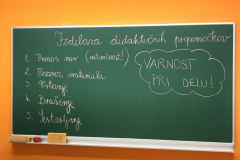 Izdelava didaktičnih pripomočkov
1. Prenos mer (natančnost!)
2. Rezanje materiala
3. Vrtanje
4. Brušenje
5. Sestavljanje
VARNOST
PRI DELU!